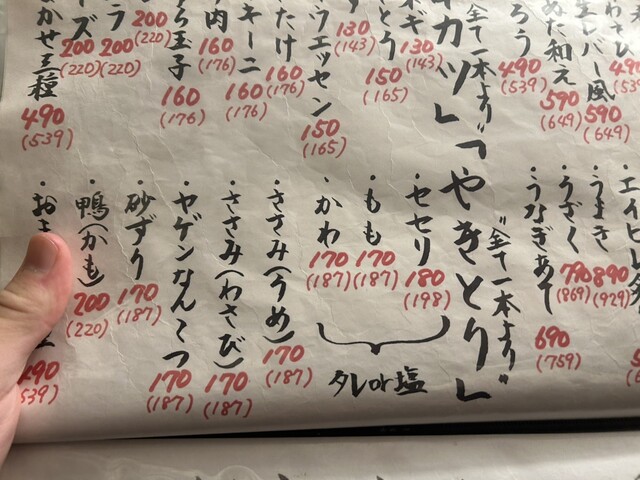 レバー風
590
(649)
め和え
590
(649)
ろう
490
(539)
"全て一本より"
カツ」
ギ
130
(143)
130
(143)
150
(165)
ウエッセン
150
(165)
たけ
160
(176)
キーニ
160
(176)
肉
160
(176)
玉子
160
(176)
200
(220)
ラ
200
(220)
ズ
200
(220)
かせ三種
490
(539)
・エイヒレ
・うまき
890
(929)
・うざく
790
(869)
・うなぎあて
690
(759)
"全て一本より"
「やきとり」
・セセリ
180
(198)
・もも
170
(187)
・かわ
170
(187)
タレor塩
・ささみ(うめ)
170
(187)
・ささみ(わさび)
170
(187)
・ヤゲンなんこつ
170
(187)
・砂ずり
170
(187)
・鴨(かも)
200
(220)
・おま
490
(539)